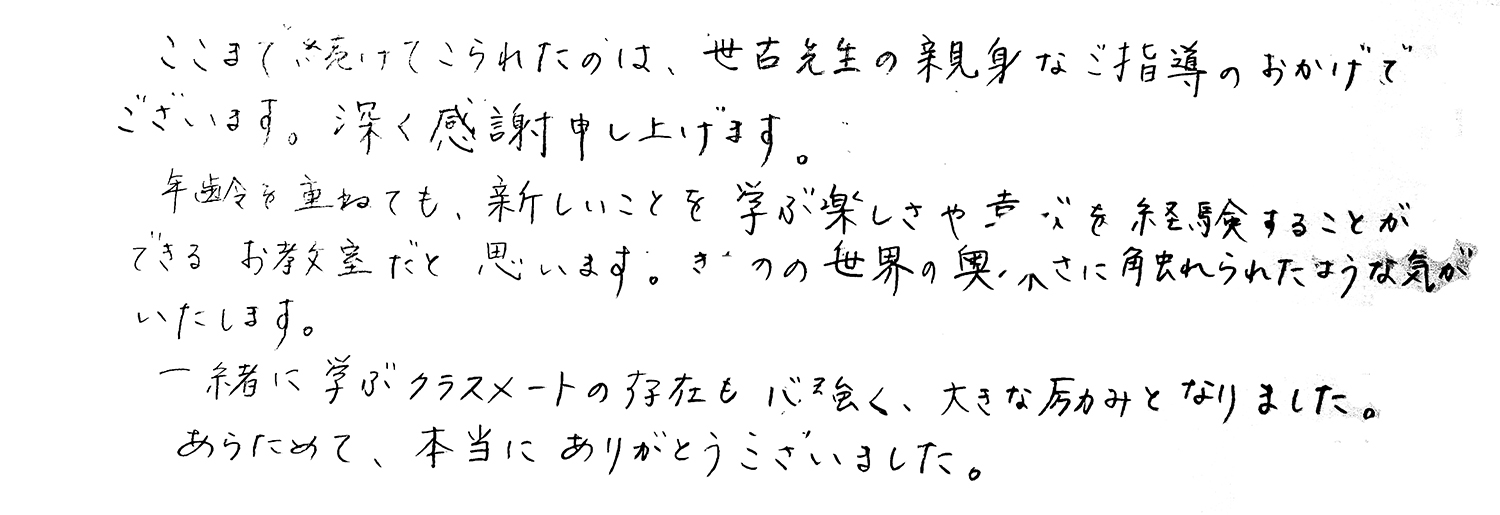 ここまで続けてこられたのは、世古先生の親身なご指導のおかげで
ございます。深く感謝申し上げます。
年齢を重ねても、新しいことを学ぶ楽しさや喜びを経験することが
できるお教室だと思います。きものの世界の奥深さに触れられたような気が
いたします。
一緒に学ぶクラスメートの存在も心強く、大きな励みとなりました。
あらためて、本当にありがとうございました。